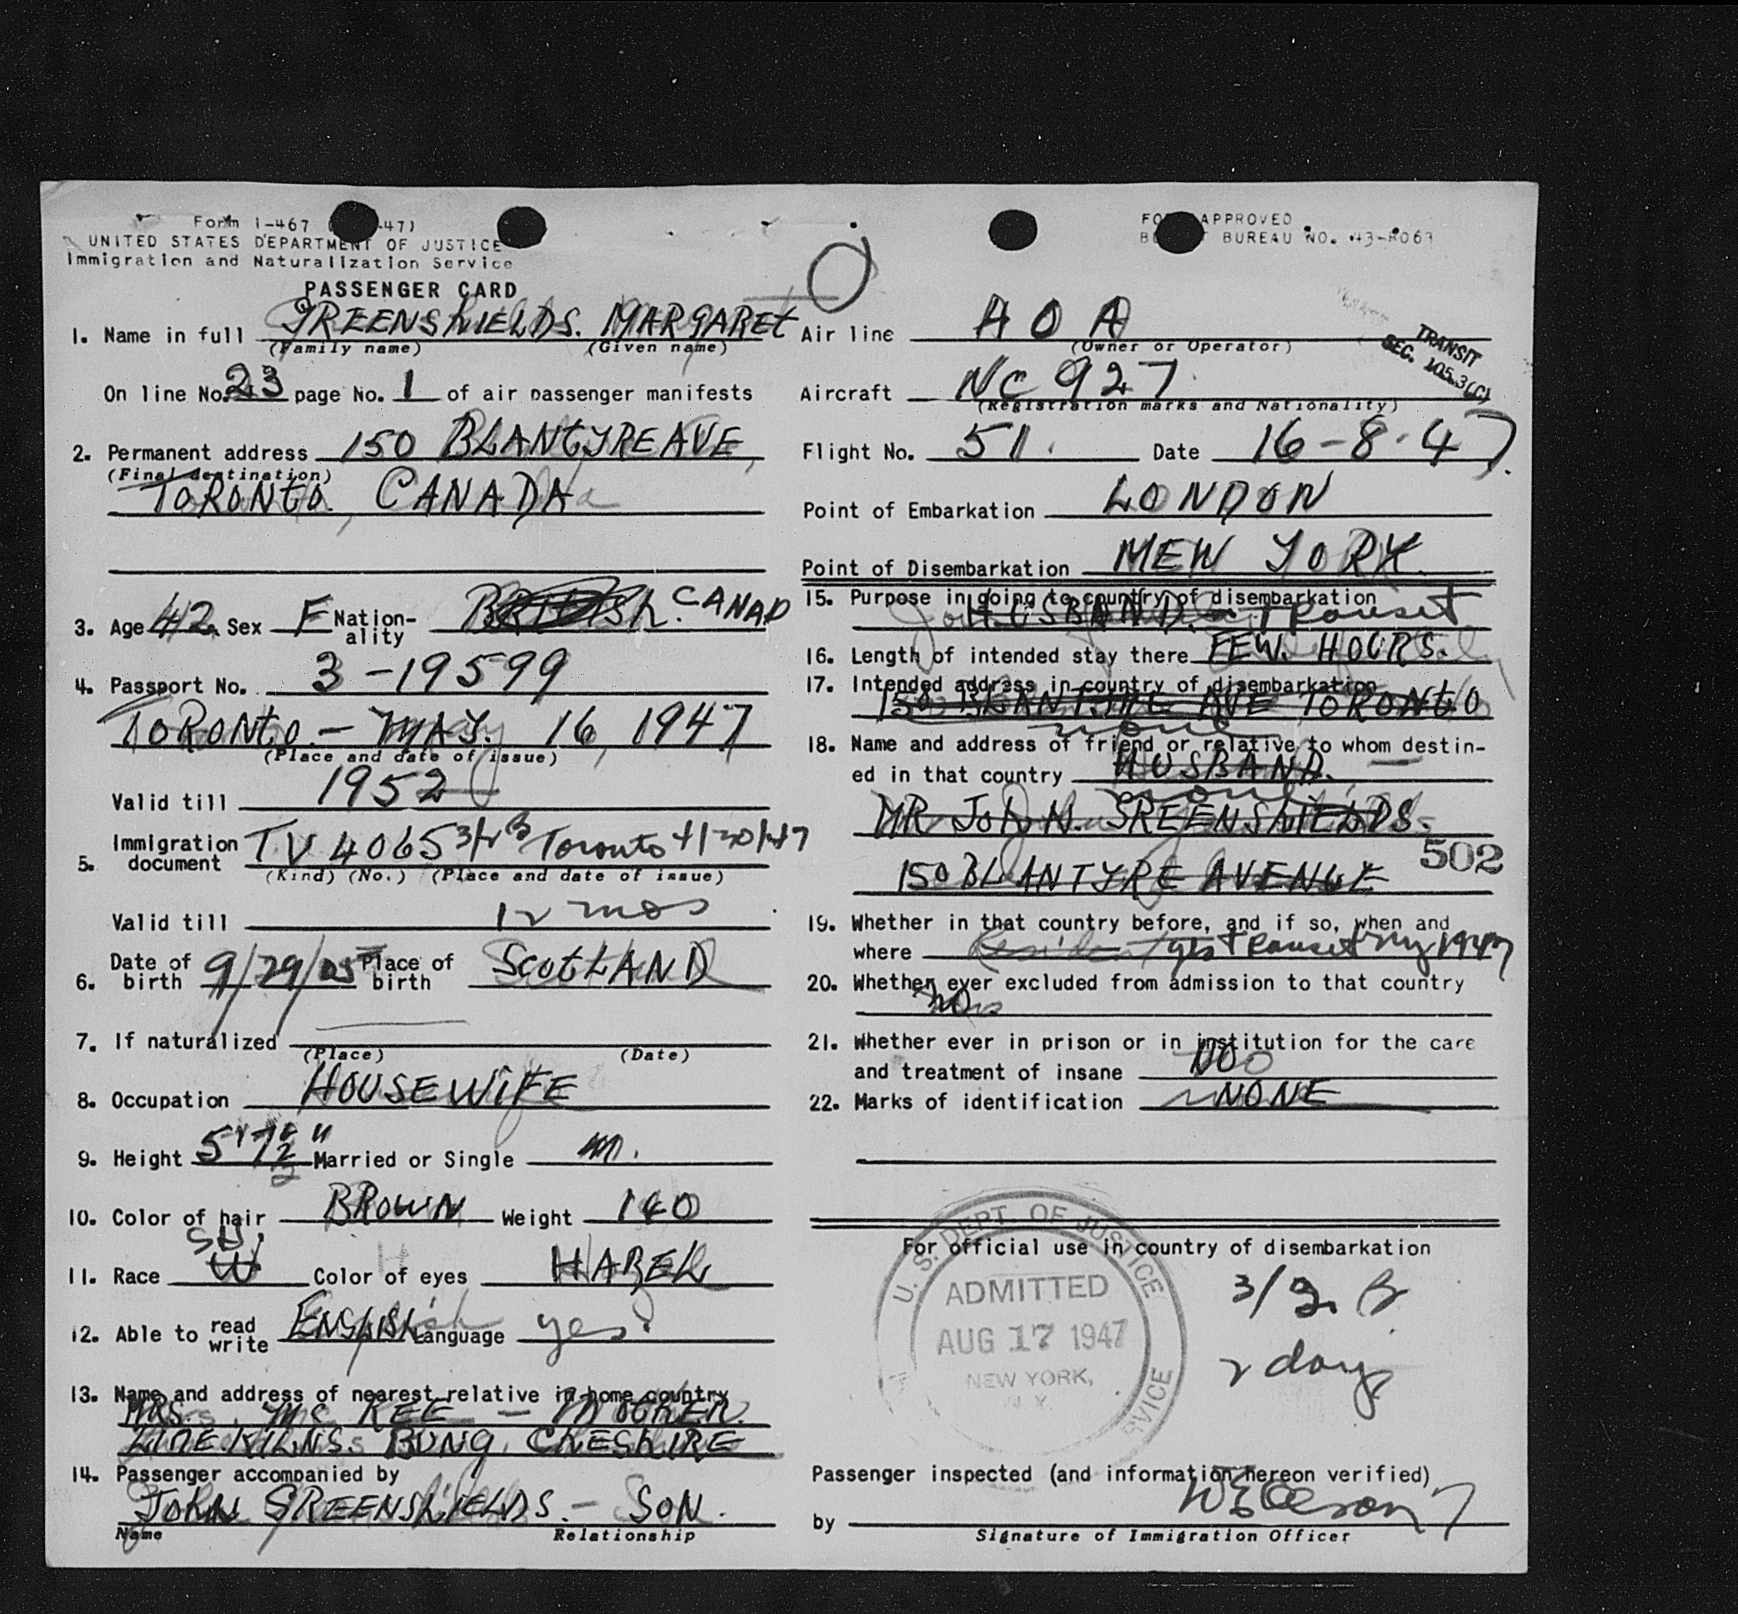 Form I-467 47)
UNITED STATES DEPARTMENT OF JUSTICE
Immigration and Naturalization Service
APPROVED
BUREAU NO. 43-R063
PASSENGER CARD
1. Name in full GREENSHIELDS. MARGARET
(Family name) (Given name)
On line No. 23 page No. 1 of air passenger manifests
2. Permanent address 150 BLANTYRE AVE,
(Final destination)
TORONTO, CANADA
3. Age 42 Sex F Nationality BRITISH. CANAD
4. Passport No. 3-19599
TORONTO - MAY. 16, 1947
(Place and date of issue)
Valid till 1952
5. Immigration document TV 4065 3/2 B Toronto 4/30/47
(Kind) (No.) (Place and date of issue)
Valid till 12 mos
6. Date of birth 9/29/05 Place of birth SCOTLAND
7. If naturalized
(Place) (Date)
8. Occupation HOUSEWIFE
9. Height 5'7½" Married or Single M.
10. Color of hair BROWN Weight 140
11. Race W Color of eyes HAZEL
12. Able to read write ENGLISH Language yes.
13. Name and address of nearest relative in home country
MRS. McKEE - MOTHER.
LIME KILNS. CHESHIRE
14. Passenger accompanied by
JOHN GREENSHIELDS - SON.
Name Relationship
Air line AOA
(Owner or Operator)
TRANSIT
SEC. 105.3(C)
Aircraft NC 927
(Registration marks and Nationality)
Flight No. 51. Date 16-8-47.
Point of Embarkation LONDON
Point of Disembarkation NEW YORK.
15. Purpose in going to country of disembarkation
HUSBAND. Transet
16. Length of intended stay there FEW HOURS.
17. Intended address in country of disembarkation
150 BLANTYRE AVE TORONTO
none
18. Name and address of friend or relative to whom destin-
ed in that country HUSBAND.
none
MR JOHN. GREENSHIELDS.
150 BLANTYRE AVENUE 502
19. Whether in that country before, and if so, when and
where Resident yes Transet NY 1947
20. Whether ever excluded from admission to that country
No
21. Whether ever in prison or in institution for the care
and treatment of insane NO
22. Marks of identification NONE
For official use in country of disembarkation
U. S. DEPT. OF JUSTICE
ADMITTED
AUG 17 1947
NEW YORK,
N. Y.
3/2 B
2 days
Passenger inspected (and information hereon verified)
by
Signature of Immigration Officer